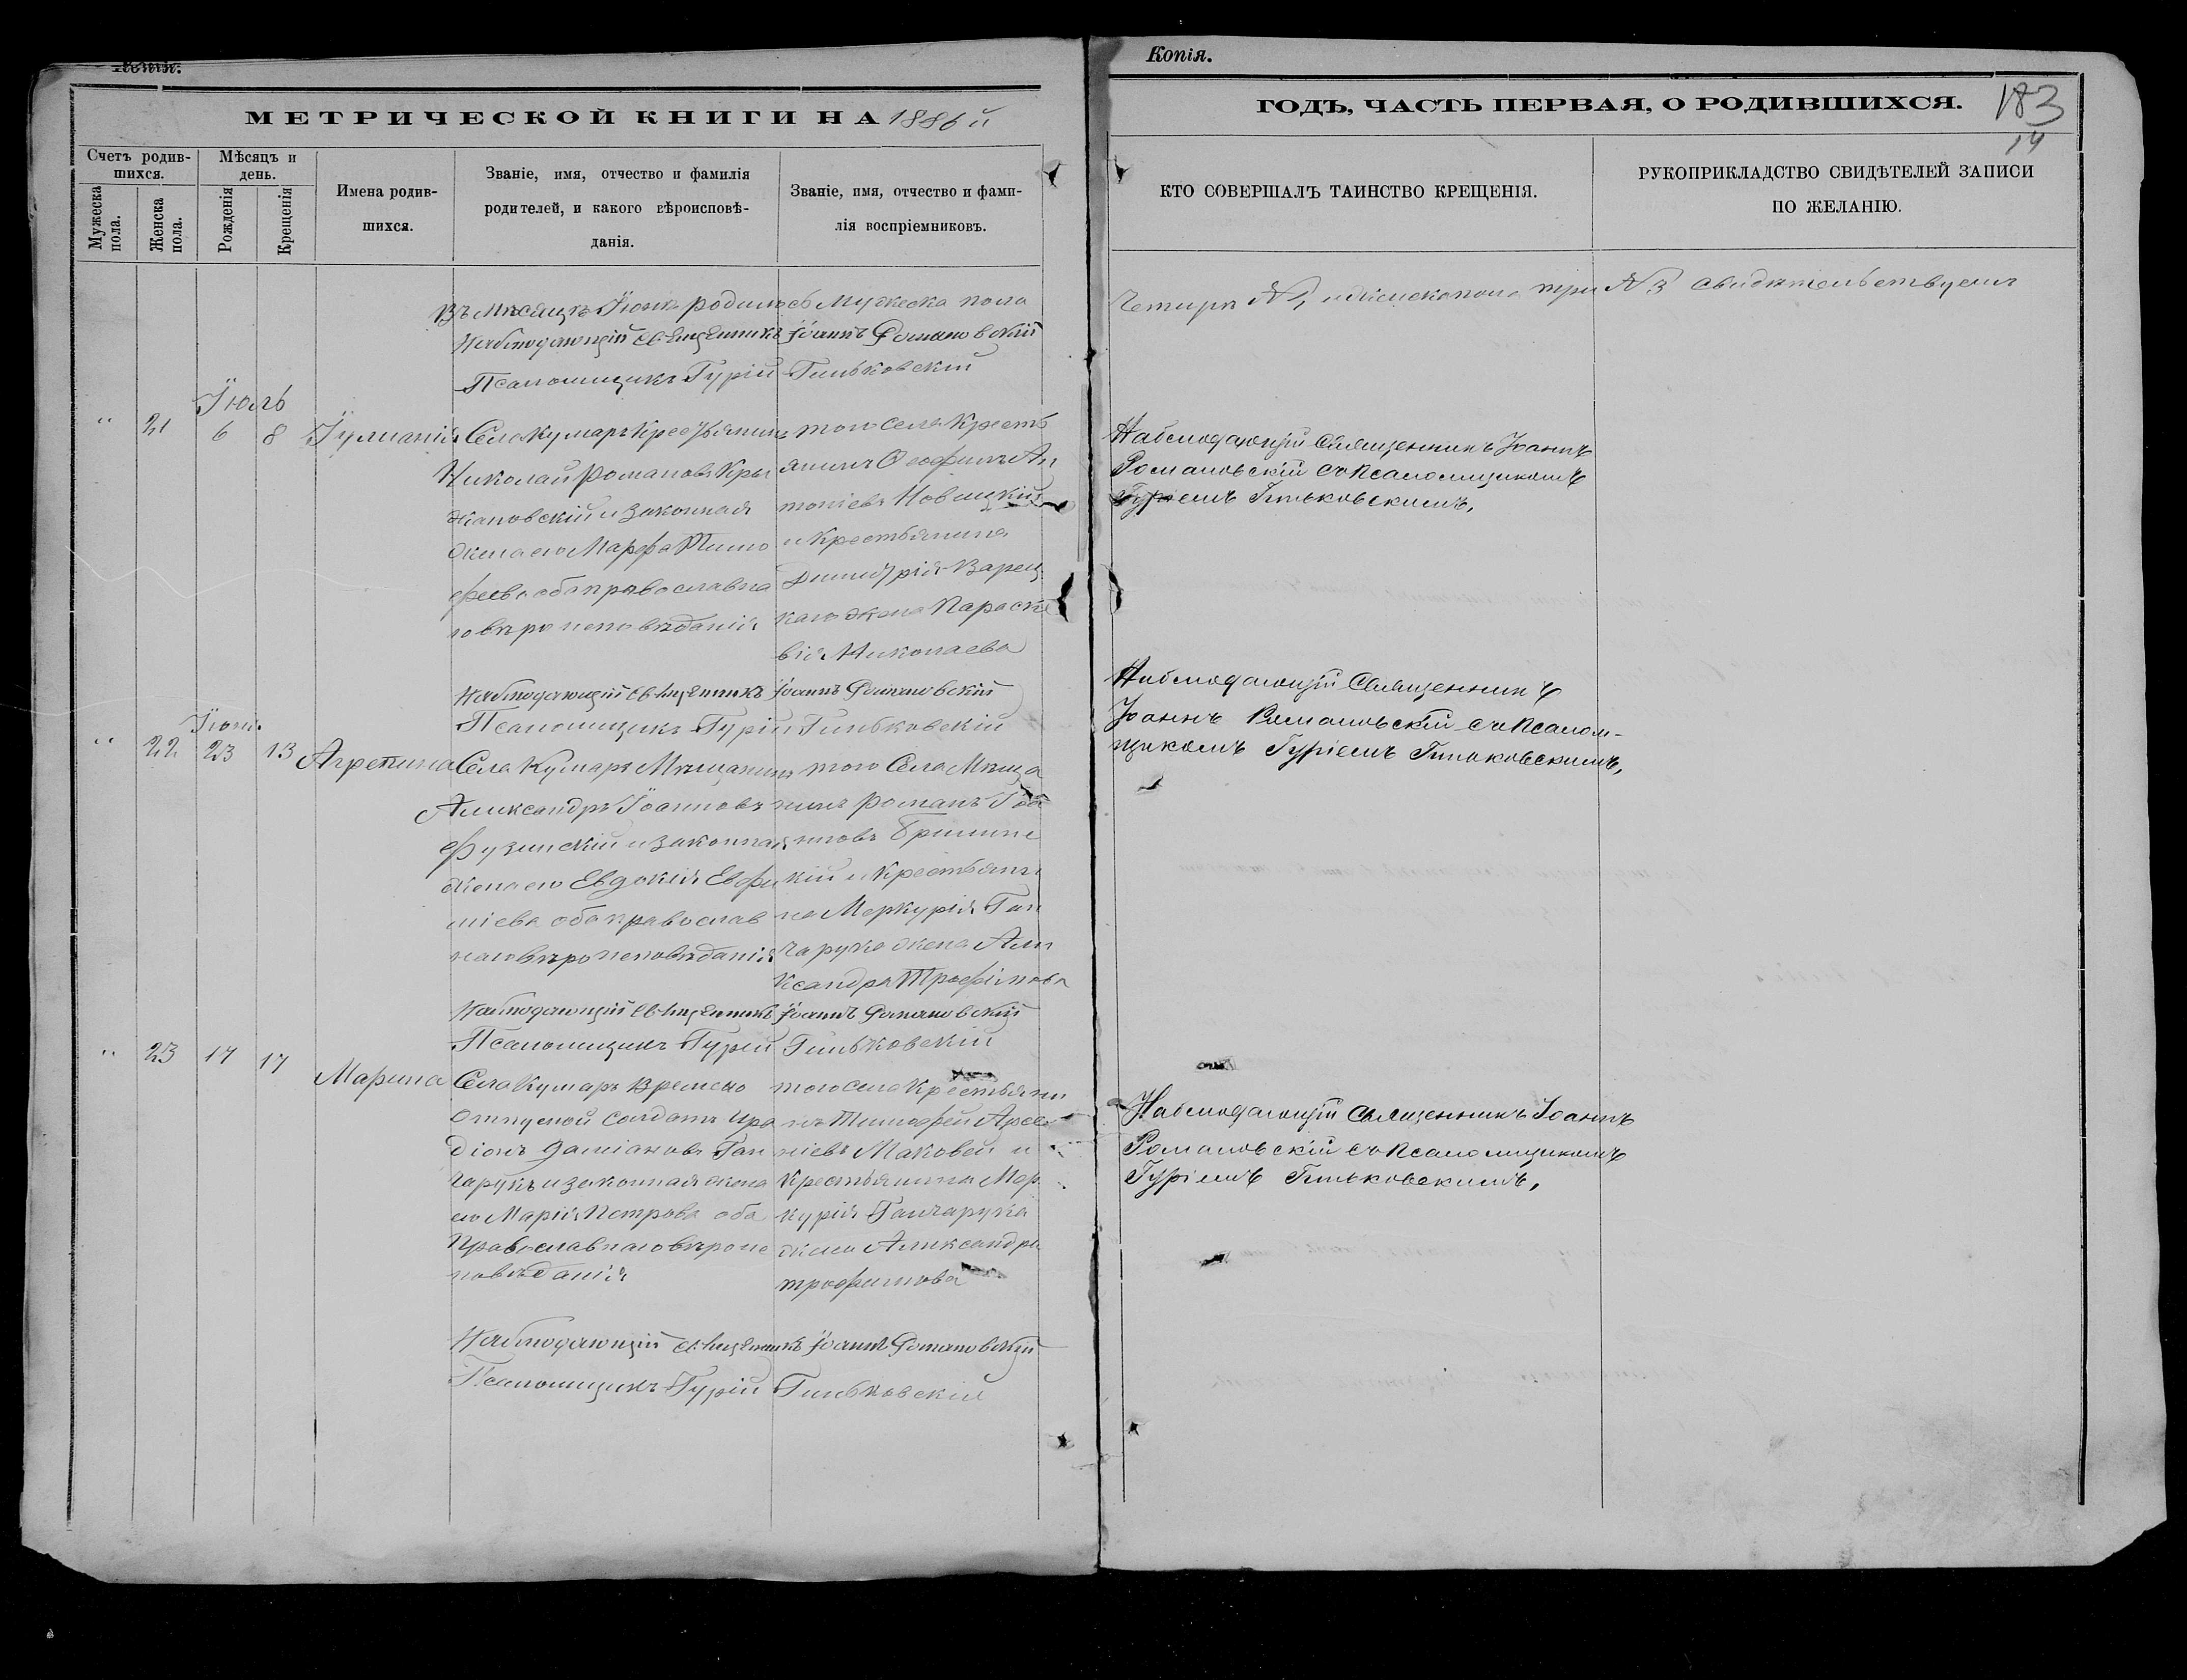 Копія.
МЕТРИЧЕСКОЙ КНИГИ НА 1886 й
ГОДЪ, ЧАСТЬ ПЕРВАЯ, О РОДИВШИХСЯ.
183
14
Счетъ родив-
шихся.
Мужеска
пола.
Женска
пола.
Мѣсяцъ и
день.
Рожденія
Крещенія
Имена родив-
шихся.
Званіе, имя, отчество и фамилія
родителей, и какого вѣроисповѣ-
данія.
Званіе, имя, отчество и фами-
лія воспріемниковъ.
КТО СОВЕРШАЛЪ ТАИНСТВО КРЕЩЕНІЯ.
РУКОПРИКЛАДСТВО СВИДѢТЕЛЕЙ ЗАПИСИ
ПО ЖЕЛАНІЮ.
Въ мѣсяцѣ Іюнѣ родилось мужеска пола
четыри № 4, женска пола три № 3 свидѣтельствуемъ
Наблюдающій Священникъ Іоаннъ Романовскій
Псаломщикъ Гурій Гиньковскій
Іюль
" 21 6 8 Іулианія
Села Кумаръ Крестьянинъ
Николай Романовъ Кры
жановскій и законная
жена его Марфа Тимо
феева оба православна
го вѣроисповѣданія
того села Кресть
янинъ Феофилъ Ан
тоніевъ Новицкій
и Крестьянина
Димитрія Варец
каго жена Параске
вія Николаева
Наблюдающій Священникъ Іоаннъ
Романовскій съ Псаломщикомъ
Гуріемъ Гиньковскимъ,
Наблюдающій Священникъ Іоаннъ Романовскій
Псаломщикъ Гурій Гиньковскій
Іюн.
" 22 23 13 Агрепина
Села Кумаръ Мѣщанинъ
Александръ Іоанновъ
Фузинскій и законная
жена его Евдокія Евфи
міева оба православ
наго вѣроисповѣданія
того Села Мѣща
нинъ Романъ Іоа
нновъ
кій и Крестьяни
на Меркурія Ган
чарука жена Але
ксандра Трофимова
Наблюдающій Священникъ
Іоаннъ Романовскій съ Псалом-
щикомъ Гуріемъ Гиньковскимъ,
Наблюдающій Священникъ Іоаннъ Романовскій
Псаломщикъ Гурій Гиньковскій
" 23 17 17 Марина
Села Кумаръ Времено
отпусной Солдатъ Иро
діонъ Даміановъ Ган
чарукъ и законная жена
его Марія Петрова оба
Православнаго вѣроис
повѣданія
того села Крестьяни
нъ Тимофей Арсе
ніевъ Маковей и
Крестьянина Мер
курія Ганчарука
жена Александра
трофимова
Наблюдающій Священникъ Іоаннъ
Романовскій съ Псаломщикомъ
Гуріемъ Гиньковскимъ,
Наблюдающій Священникъ Іоаннъ Романовскій
Псаломщикъ Гурій Гиньковскій